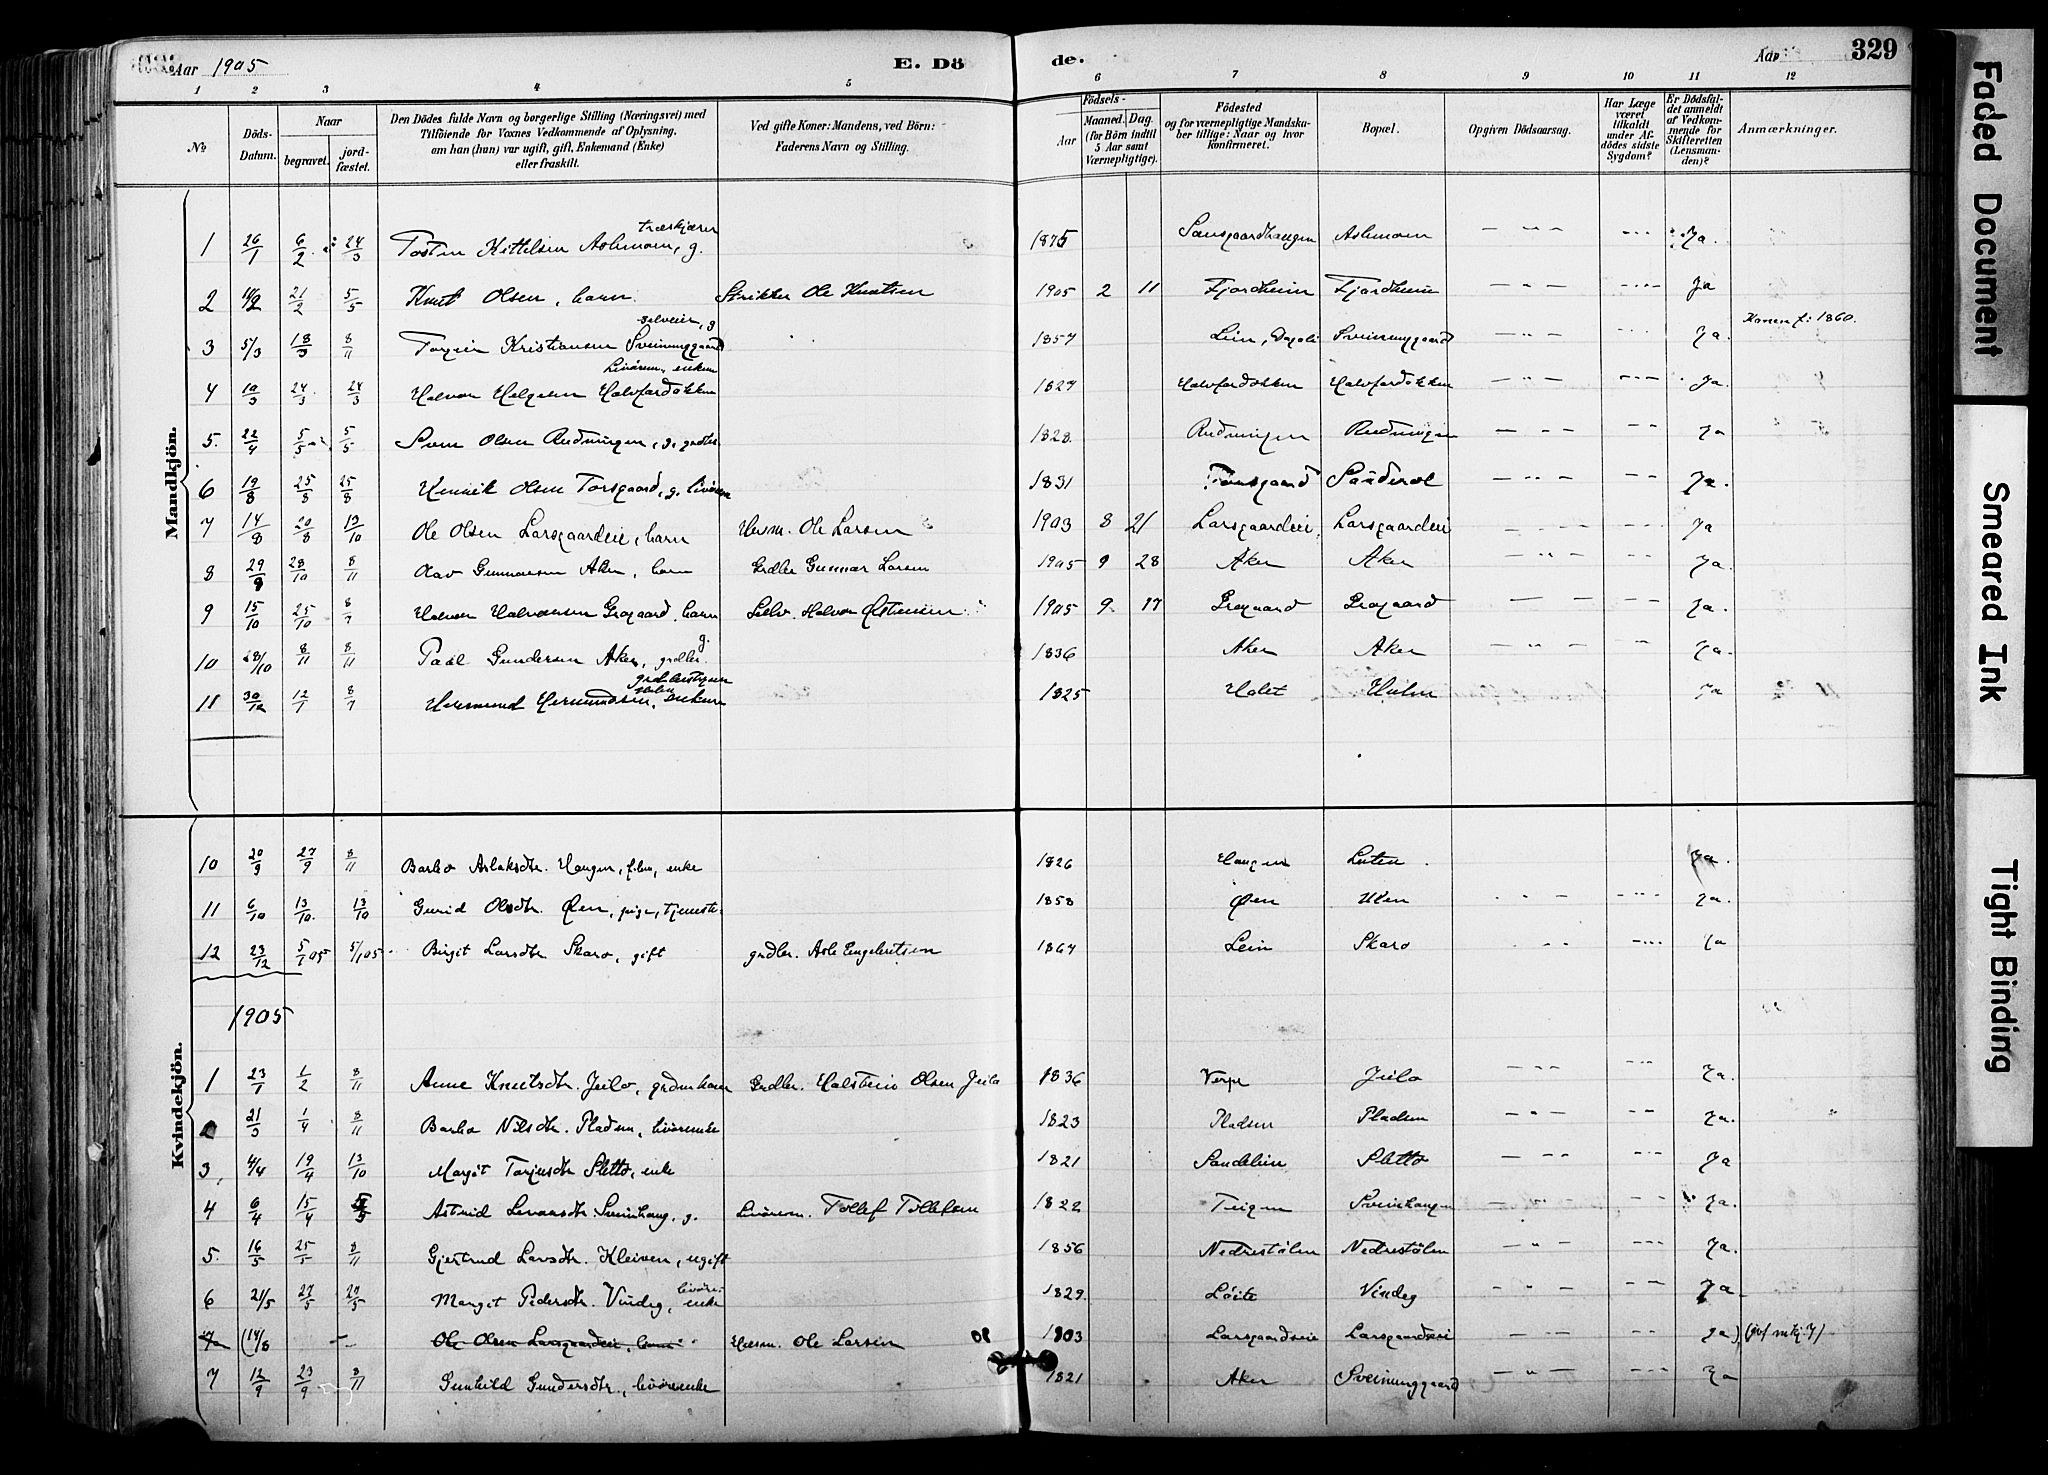 Aar 1905 E. Dö de. Aar 329
1 2 3 4 5 6 7 8 9 10 11 12
No
Döds-Datum.
Naar
begravet.
jord-fæstet.
Den Dödes fulde Navn og borgerlige Stilling (Næringsvei) med
Tilföiende for Voxnes Vedkommende af Oplysning,
om han (hun) var ugift, gift, Enkemand (Enke)
eller fraskilt.
Ved gifte Koner: Mandens, ved Börn:
Faderens Navn og Stilling.
Födsels-
Aar
Maaned. Dag.
(for Börn indtil
5 Aar samt
Værnepligtige).
Födested
og for værnepligtige Mandska-
ber tillige: Naar og hvor
konfirmeret.
Bopæl.
Opgiven Dödsaarsag.
Har Læge
været
tilkaldt
under Af-
dödes sidste
Sygdom?
Er Dödsfal-
det anmeldt
af Vedkom-
mende for
Skifteretten
(Lensman-
den)?
Anmærkninger.
Mandkjön.
1 26/1 6/2 24/3 Tosten Kittilsen g. 1875 Ja.
2 21/2 5/5 Knut Olsen, barn. Ole Knutsen 1905 2 11 Fjordheim Fjordheim Ja
selveier, g Konen f: 1860.
3 5/3 18/3 8/11 Torgeir Kristiansen Sveinunggaard 1857 Lien, Dagali Sveinunggaard Ja.
4 10/3 24/3 24/3 Halvor Helgesen Halvfardokken 1827 Halvfardokken Halvfardokken Ja.
5. 22/4 5/5 5/5 Sven Olsen Rudningen, g. grdbr. 1828. Rudningen Rudningen Ja
6 19/8 25/8 25/8 Henrik Olsen Torsgaard, g. 1831 Ja.
7 14/8 20/8 13/10 Ole Olsen Larsgaardeie, barn Husm. Ole Larsen 1903 8 21 Larsgaardeie Larsgaardeie Ja
8 29/9 28/10 8/11 Olav Gunnarsen Aker, barn Grdbr Gunnar Larsen 1905 9 28 Aker Aker Ja.
9 15/10 25/10 Halvor Halvorsen Gragaard, barn Selv. Halvor Østensen 1905 9. 17 Gragaard Gragaard Ja.
10 28/10 8/11 8/11 Paal Gundersen Aker, grdbr. g. 1836 Aker Aker Ja.
11 12/1 Hermund Hermundsen, enkem 1825 Holet Holm Ja
Kvindekjön.
10 20/9 27/9 8/11 Barbo Aslaksdtr. Haugen, enke 1826 Haugen Ja.
11 6/10 13/10. 13/10 Gurid Olsdtr. Øen, pige, 1858 Øen Ja.
12 23/12 5/1 05 5/1 05 Birgit Larsdtr Skaro, gift grdbr. Asle Engebretsen 1864 Lein Skaro Ja
1905
1 23/1 1/2 8/11 Anne Knutsdtr. Jeilo, Grdbr. Halstein Olsen Jeilo 1836 Verpe Jeilo Ja.
2 21/3 1/4 8/11 Barbo Nilsdtr. Pladsen, 1823 Pladsen Pladsen Ja.
3, 4/4 19/4 13/10 Margit Torjusdtr Sletto, enke 1821 Sandelien Sletto Ja
4 6/4 15/4 Astrid Sveinhaug, g. Tollef Tollefsen 1822 Teigen Sveinhaugen Ja.
5. 16/5 25/5 8/11 Gjertrud Larsdtr. Kleiven, ugift 1856 Nedrestölen Nedrestölen Ja.
6 21/5 27/5 27/5 Margit Pedersdtr. Vindeg, enke 1829. Vindeg Ja
(14/8 Ole Olsen Larsgaardeie, barn Husm. Ole Larsen 1903 Larsgaardseie Larsgaardseie Ja) (jvf mkj. 7)
7 12/9 23/9 8/11 Gunhild Gundersdtr., 1821 Aker Sveinunggaard Ja
Faded Document
Smeared Ink
Tight Binding